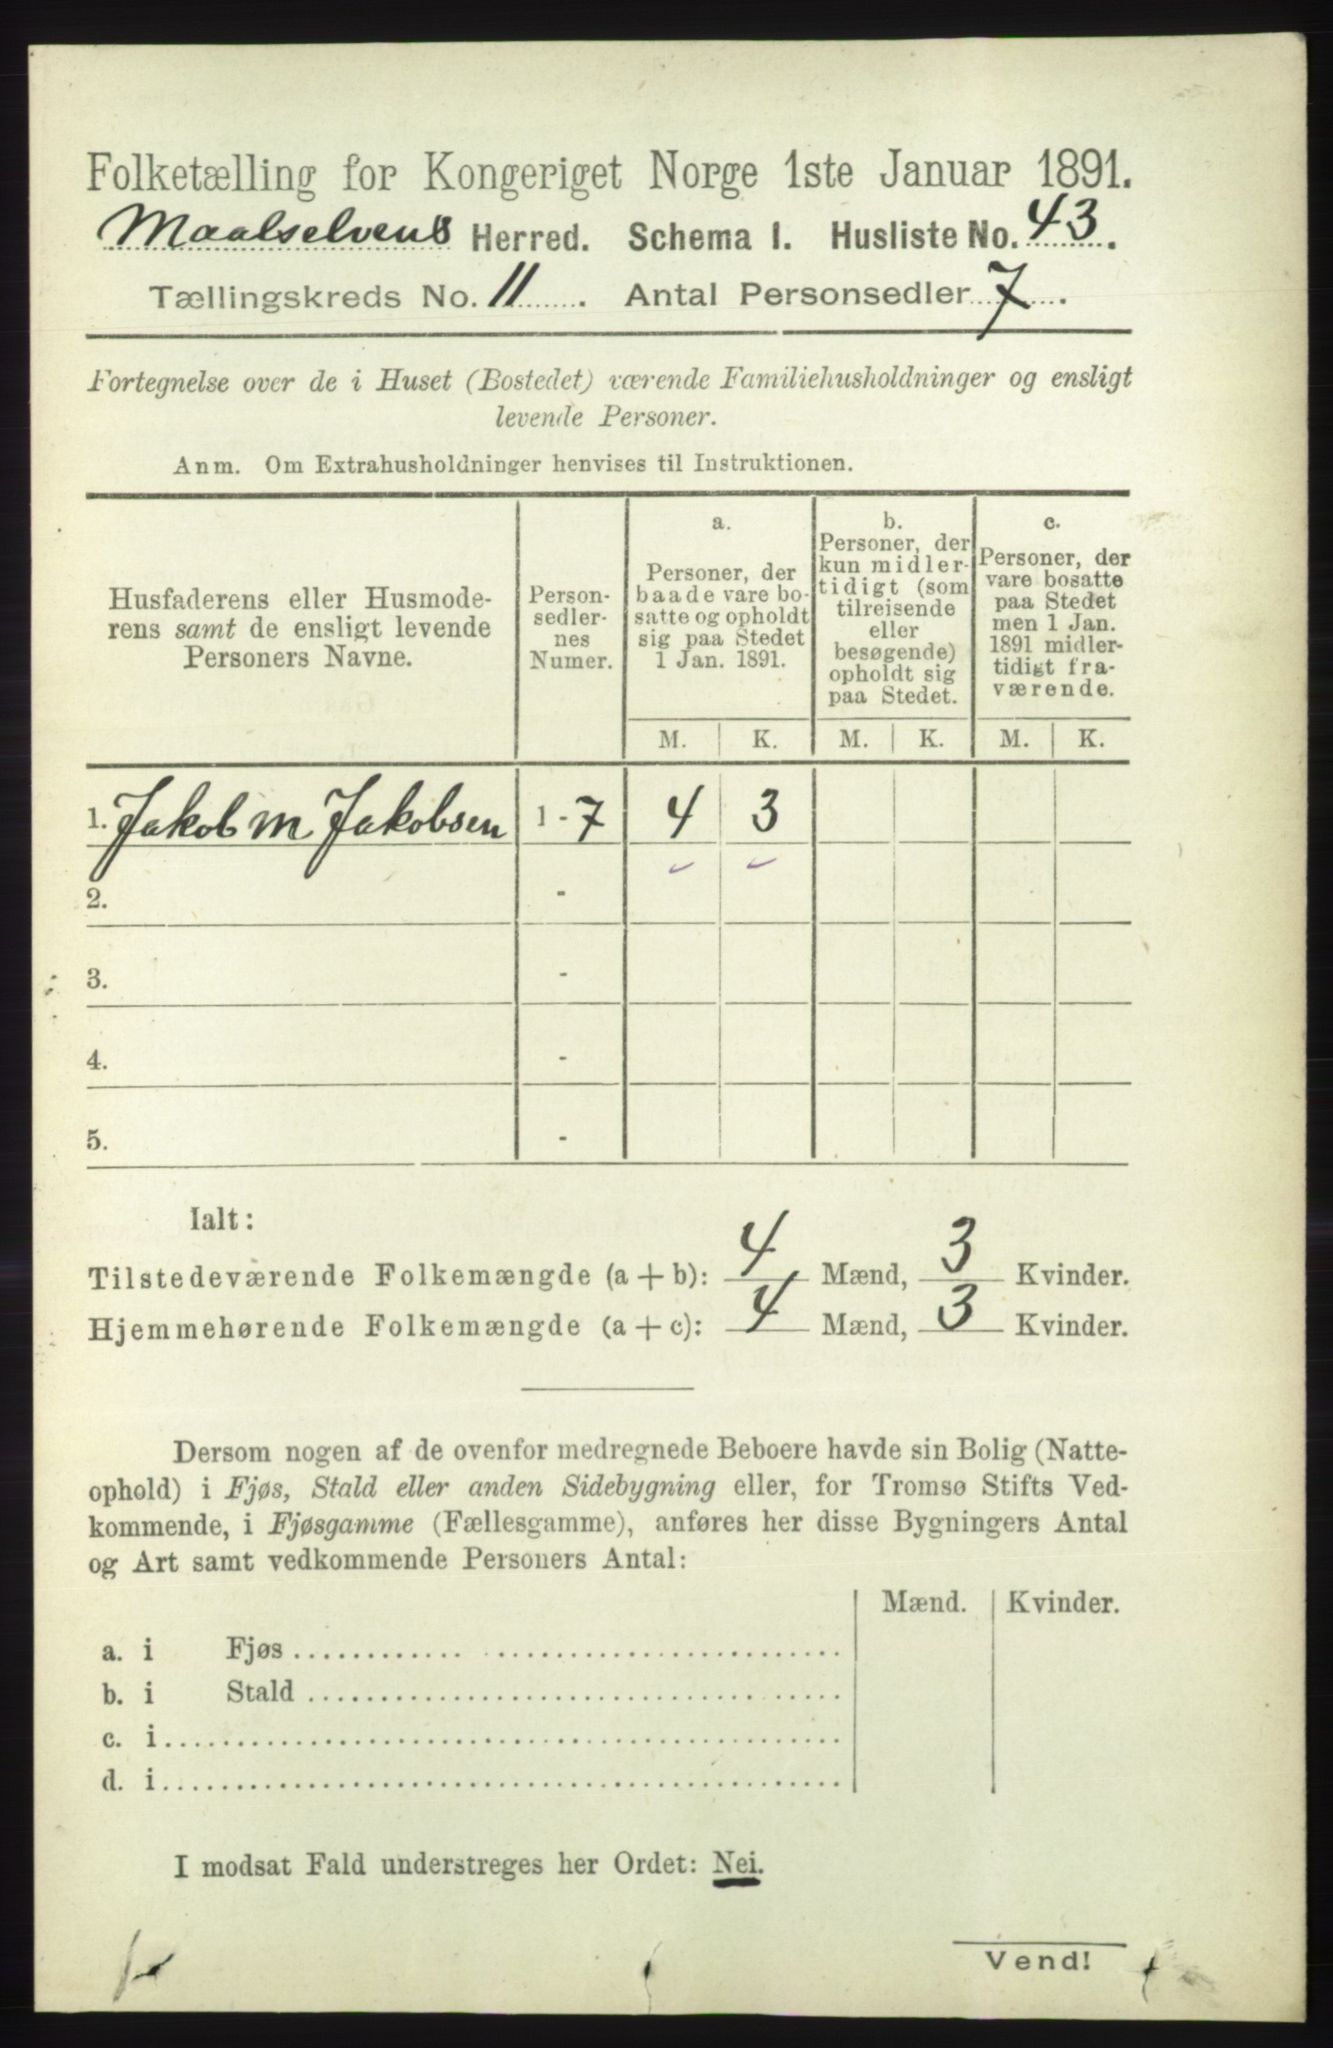 Folketælling for Kongeriget Norge 1ste Januar 1891.
Maalselvens Herred. Schema I. Husliste No. 43.
Tællingskreds No. 11. Antal Personsedler 7.
Fortegnelse over de i Huset (Bostedet) værende Familiehusholdninger og ensligt
levende Personer.
Anm. Om Extrahusholdninger henvises til Instruktionen.
Husfaderens eller Husmode-
rens samt de ensligt levende
Personers Navne.
Person-
sedler-
nes
Numer.
a.
Personer, der
baade vare bo-
satte og opholdt
sig paa Stedet
1 Jan. 1891.
b.
Personer, der
kun midler-
tidigt (som
tilreisende
eller
besøgende)
opholdt sig
paa Stedet.
c.
Personer, der
vare bosatte
paa Stedet
men 1 Jan.
1891 midler-
tidigt fra-
værende.
M. K. M. K. M. K.
1. Jakob M Jakobsen 1 - 7 4 3
2. -
3. -
4. -
5. -
Ialt:
Tilstedeværende Folkemængde (a + b): 4 Mænd, 3 Kvinder.
Hjemmehørende Folkemængde (a + c): 4 Mænd, 3 Kvinder.
Dersom nogen af de ovenfor medregnede Beboere havde sin Bolig (Natte-
ophold) i Fjøs, Stald eller anden Sidebygning eller, for Tromsø Stifts Ved-
kommende, i Fjøsgamme (Fællesgamme), anføres her disse Bygningers Antal
og Art samt vedkommende Personers Antal:
Mænd. Kvinder.
a. i Fjøs
b. i Stald
c. i
d. i
I modsat Fald understreges her Ordet: Nei.
Vend!